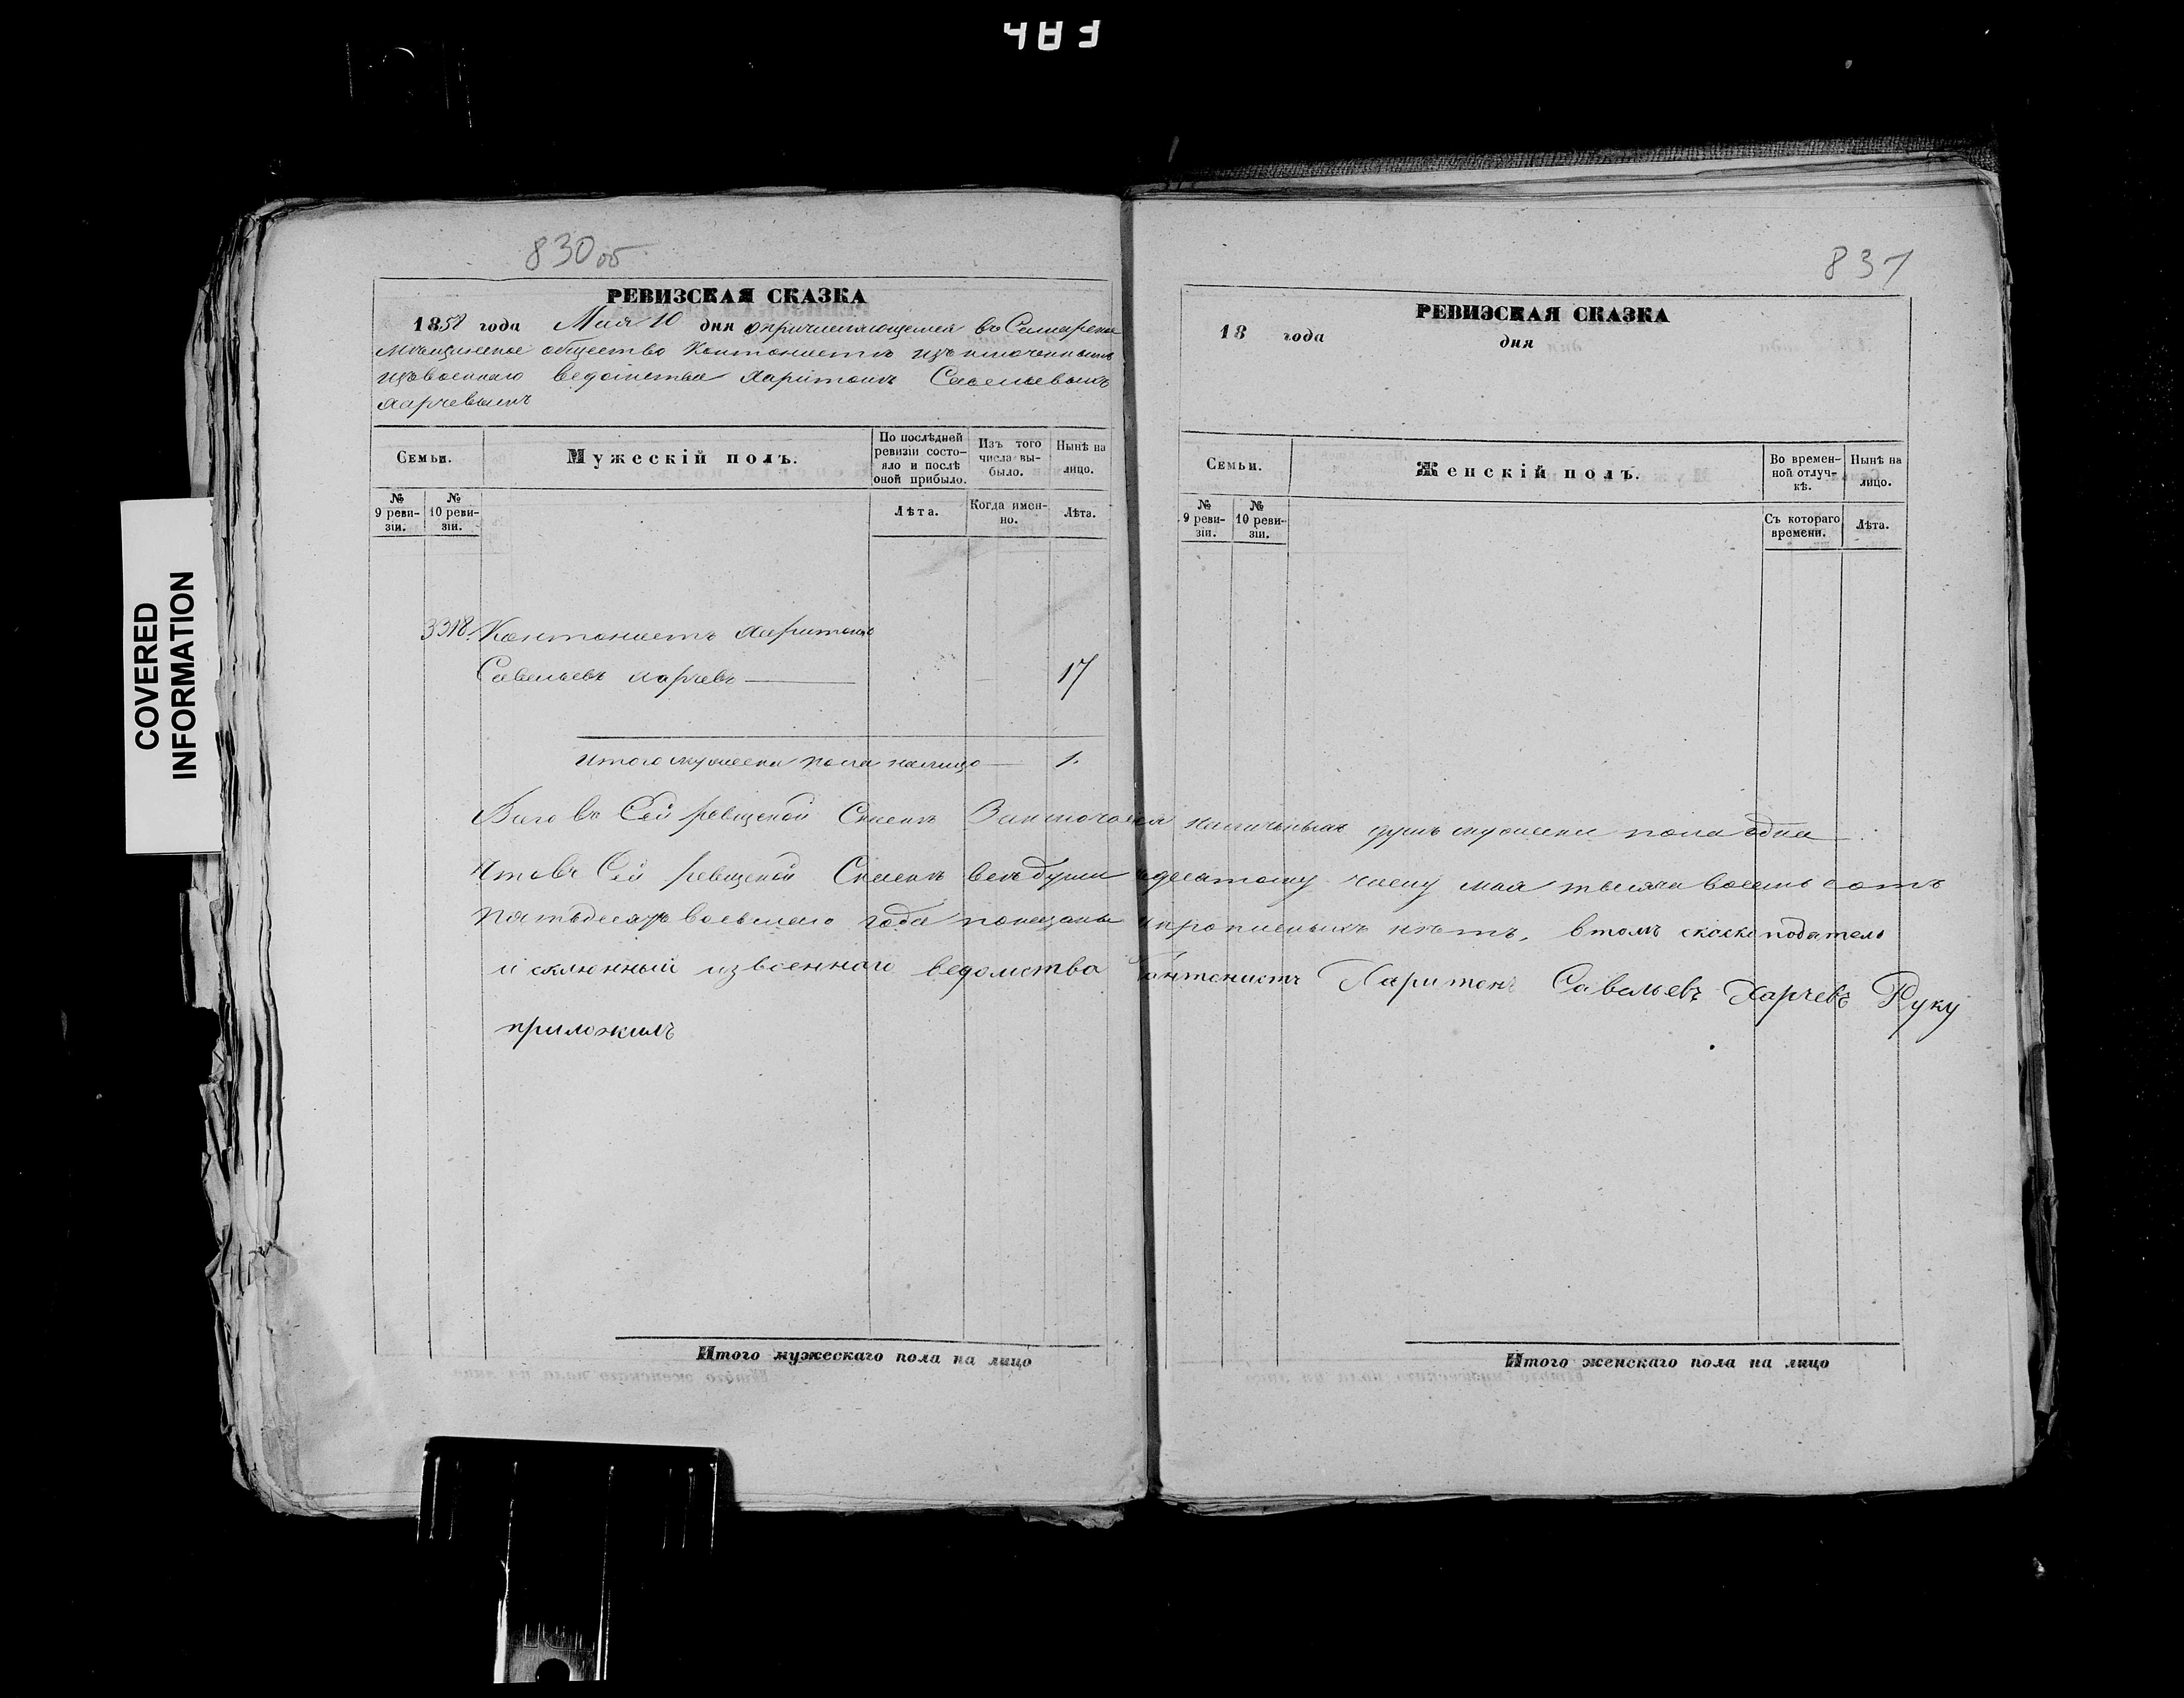 830 об
РЕВИЗСКАЯ СКАЗКА
1858 года Мая 10 дня о причисляющемся въ Самарское
мещанское общество Кантонистъ изключеннымъ
изъ военнаго ведомства Харитонъ Савельевымъ
Харчевымъ
Семьи.
Мужескій полъ.
По послѣдней ревизіи состояло и послѣ оной прибыло.
Изъ того числа выбыло.
Нынѣ на лицо.
№ 9 ревизіи.
№ 10 ревизіи.
Лѣта.
Когда именно.
Лѣта.
3318. Кантонистъ Харитонъ
Савельевъ Харчевъ 17
Итого мужеска пола налицо 1.
Всего въ Сей ревизской Сказке Заключается наличныхъ душъ мужеска пола одна
Что въ Сей ревизской Сказке все души к десятому числу мая тысяча восемь сотъ
пятьдесятъ восьмаго года показаны и прописныхъ нетъ, в томъ сказкоподатель
исклюнный из военнаго ведомства Кантонистъ Харитонъ Савельевъ Харчевъ Руку
приложилъ
Итого мужескаго пола на лицо
831
РЕВИЗСКАЯ СКАЗКА
18 года дня
Семьи.
Женскій полъ.
Во временной отлучкѣ.
Нынѣ на лицо.
№ 9 ревизіи.
№ 10 ревизіи.
Съ котораго времени.
Лѣта.
Итого женскаго пола на лицо
COVERED
INFORMATION